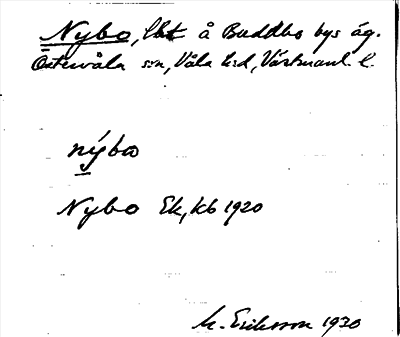 Nybo, lht å Buddbo bys äg.
Östervåla sn, Våla hd, Västmanl. l.
nýbo
Nybo Ek, kb 1920
M. Eriksson 1930